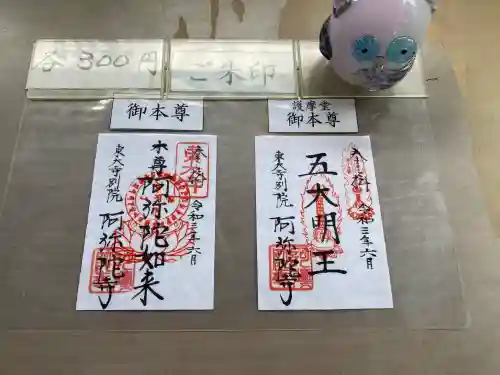 各300円
ご朱印
御本尊
護摩堂
御本尊
奉拝
令和三年六月
本尊
阿弥陀如来
東大寺別院
阿弥陀寺
奉拝
令和三年六月
五大明王
東大寺別院
阿弥陀寺